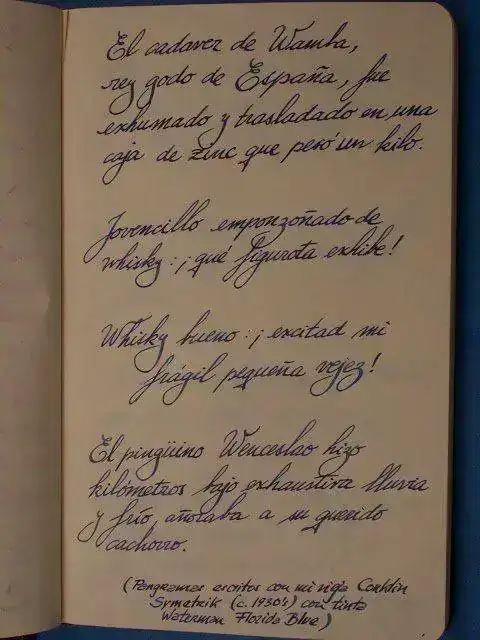 El cadaver de Wamba,
rey godo de España, fue
exhumado y trasladado en una
caja de zinc que pesó un kilo.
Jovencillo emponzoñado de
whisky: ¡qué figurota exhibe!
Whisky bueno: ¡excitad mi
frágil pequeña vejez!
El pingüino Wenceslao hizo
kilómetros bajo exhaustiva lluvia
y frío, añoraba a su querido
cachorro.
(Pangramas escritos con mi vieja Conklin
Symetrik (c. 1930's) con tinta
Waterman Florida Blue)